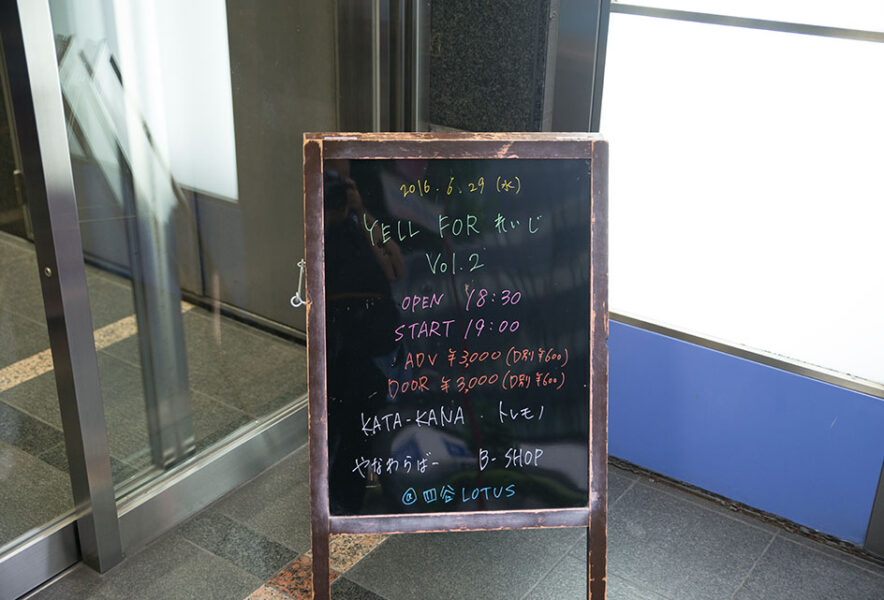 2016.6.29 (水)
YELL FOR れいじ
Vol.2
OPEN 18:30
START 19:00
ADV ¥3,000 (D別¥600)
DOOR ¥3,000 (D別¥600)
KATA-KANA . トレモノ
やなわらばー B-SHOP
@四谷LOTUS